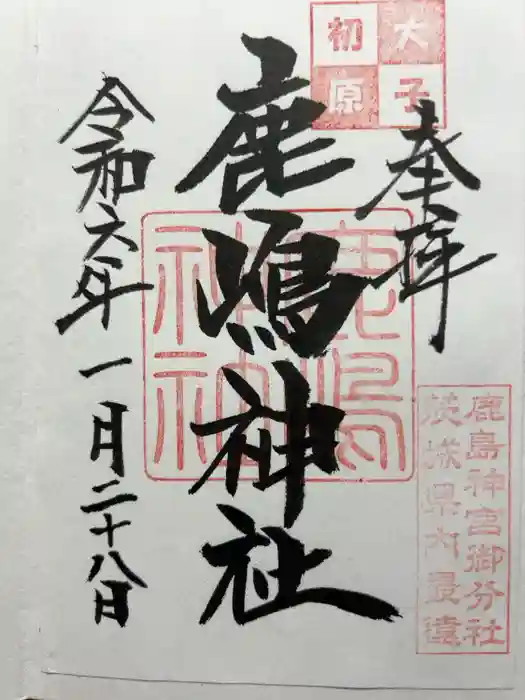 大子
初原
奉拝
鹿嶋神社
鹿嶋神社
令和六年一月二十八日
鹿島神宮御分社
茨城県内最遠